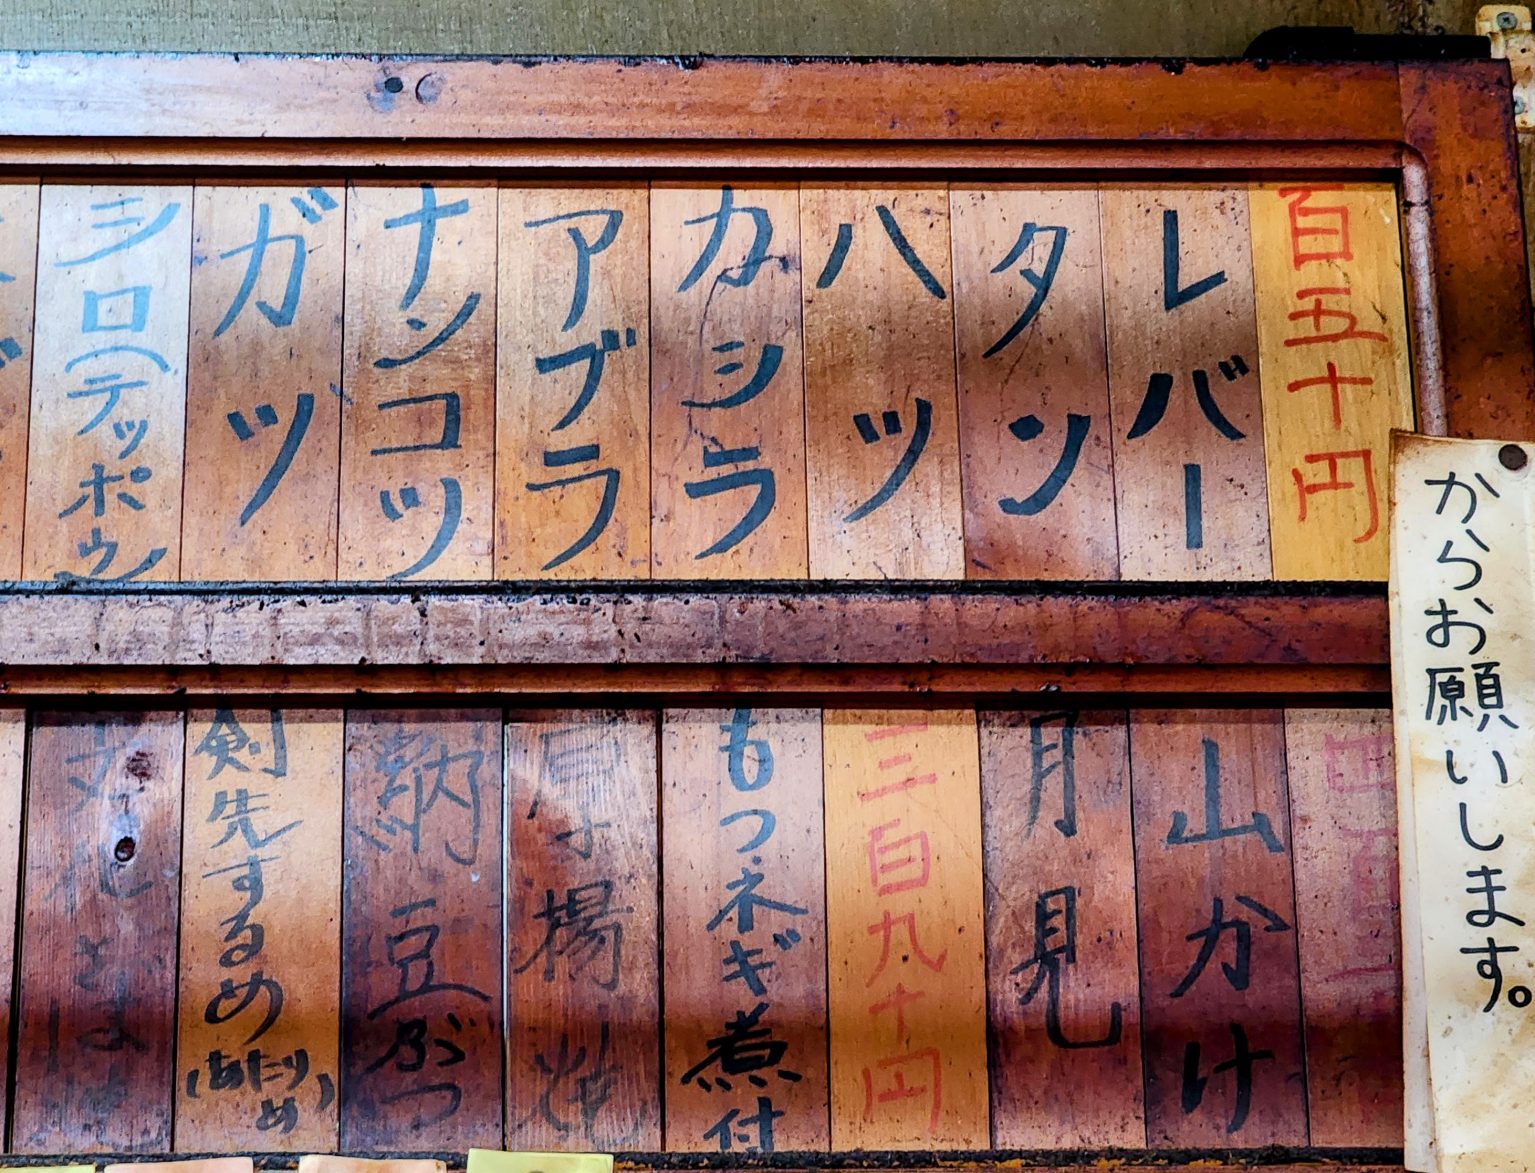 百五十円
レバー
タン
ハツ
カシラ
アブラ
ナンコツ
ガツ
シロ(テッポウ)
山かけ
月見
三百九十円
もつネギ煮付
厚揚げ焼
納豆ぶつ
剣先するめ(あたりめ)
からお願いします。